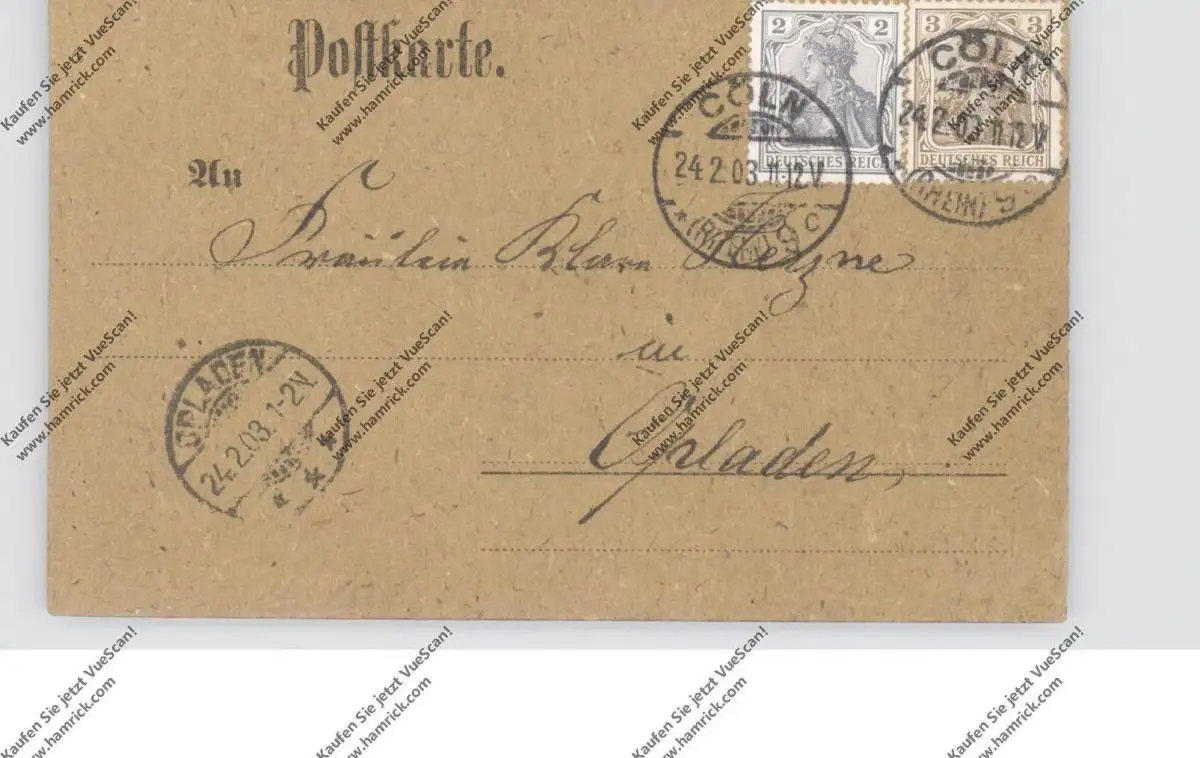 Postkarte.
2 2
3 3
DEUTSCHES REICH
DEUTSCHES REICH
CÖLN
24.2.03.11.12.V.
* (RHEIN) 9 c
CÖLN
24.2.03.11.12.V.
** (RHEIN) 9
An
Fräulein Klara
in
Opladen
OPLADEN
24.2.03.1-2N.
* *
Kaufen Sie jetzt VueScan!
www.hamrick.com
Kaufen Sie jetzt VueScan!
www.hamrick.com
Kaufen Sie jetzt VueScan!
www.hamrick.com
Kaufen Sie jetzt VueScan!
www.hamrick.com
Kaufen Sie jetzt VueScan!
www.hamrick.com
Kaufen Sie jetzt VueScan!
www.hamrick.com
Kaufen Sie jetzt VueScan!
www.hamrick.com
Kaufen Sie jetzt VueScan!
www.hamrick.com
Kaufen Sie jetzt VueScan!
www.hamrick.com
Kaufen Sie jetzt VueScan!
www.hamrick.com
Kaufen Sie jetzt VueScan!
www.hamrick.com
Kaufen Sie jetzt VueScan!
www.hamrick.com